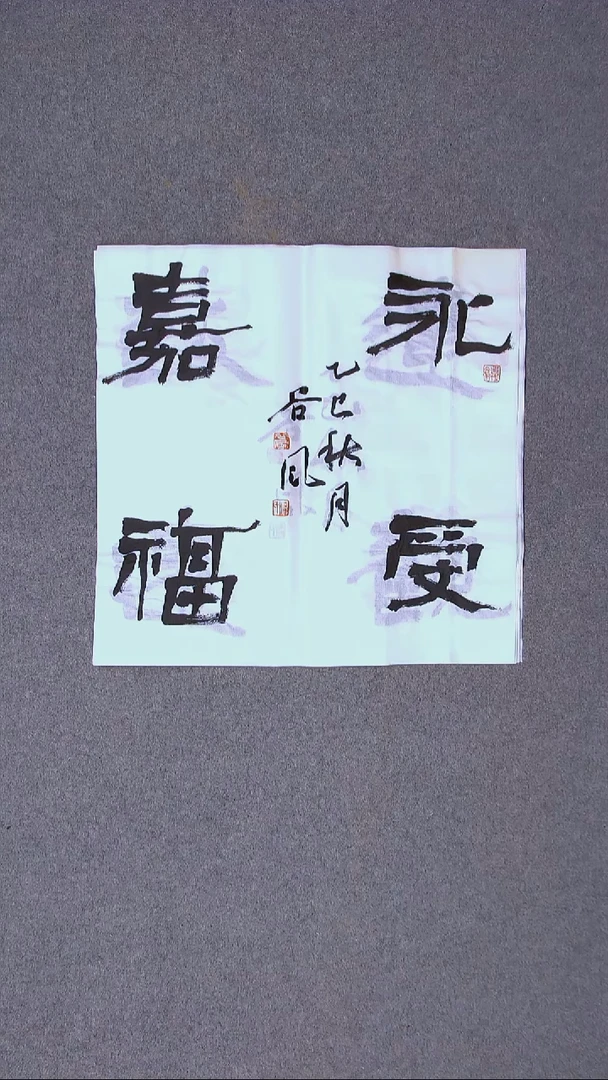 永受
嘉福
乙巳秋月
谷风